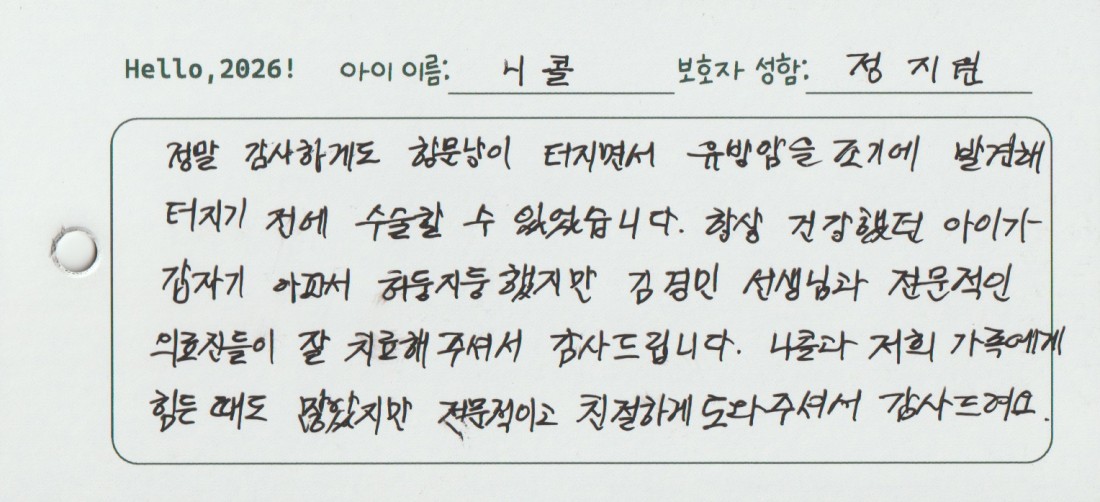 Hello, 2026! 아이 이름: 니콜 보호자 성함: 정지원
정말 감사하게도 항문낭이 터지면서 유방암을 조기에 발견해
터지기 전에 수술할 수 있었습니다. 항상 건강했던 아이가
갑자기 아파서 허둥지둥 했지만 김경민 선생님과 전문적인
의료진들이 잘 치료해 주셔서 감사드립니다. 니콜과 저희 가족에게
힘든 때도 많았지만 전문적이고 친절하게 도와주셔서 감사드려요.